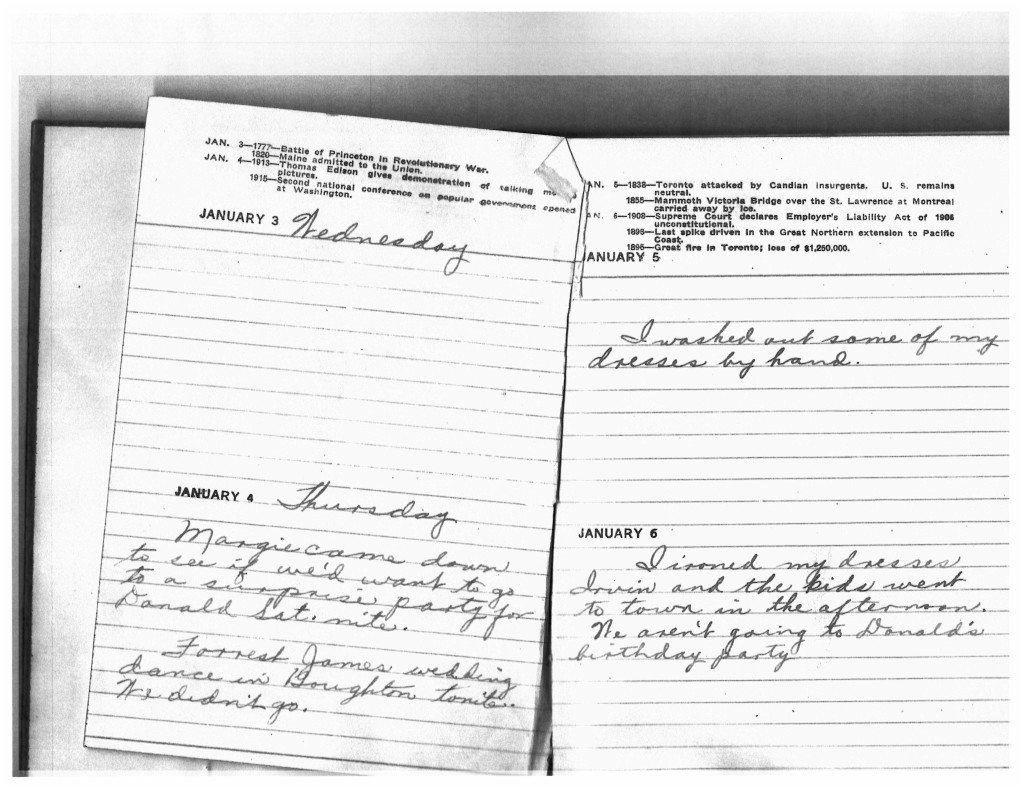 JAN. 3—1777—Battle of Princeton in Revolutionery War.
1820—Maine admitted to the Union.
JAN. 4—1913—Thomas Edison gives demonstration of talking
pictures.
1915—Second national conference on popular government opened
at Washington.
JANUARY 3 Wednesday
JANUARY 4 Thursday
Margie came down
to see if we'd want to go
to a surprise party for
Donald Sat. nite.
Forrest James wedding
dance in Houghton tonite.
We didn't go.
AN. 5—1838—Toronto attacked by Candian insurgents. U. S. remains
neutral.
1855—Mammoth Victoria Bridge over the St. Lawrence at Montreal
carried away by ice.
AN. 6—1908—Supreme Court declares Employer's Liability Act of 1906
unconstitutional.
1896—Last spike driven in the Great Northern extension to Pacific
Coast.
1896—Great fire in Toronto; loss of $1,250,000.
ANUARY 5
I washed out some of my
dresses by hand.
JANUARY 6
I ironed my dresses
Irvin and the kids went
to town in the afternoon.
We aren't going to Donald's
birthday party